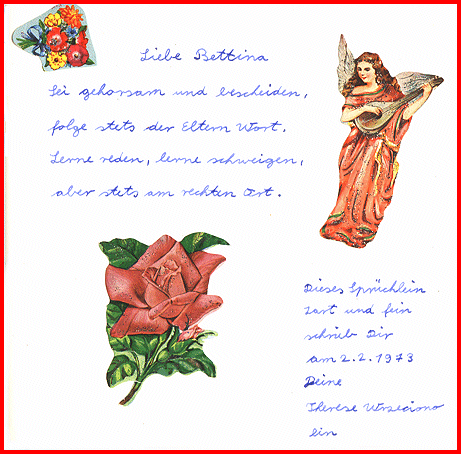 Liebe Bettina
Sei gehorsam und bescheiden,
folge stets der Eltern Wort.
Lerne reden, lerne schweigen,
aber stets am rechten Ort.
Dieses Sprüchlein
zart und fein
schrieb Dir
am 2.2.1973
Deine
Therese
ein